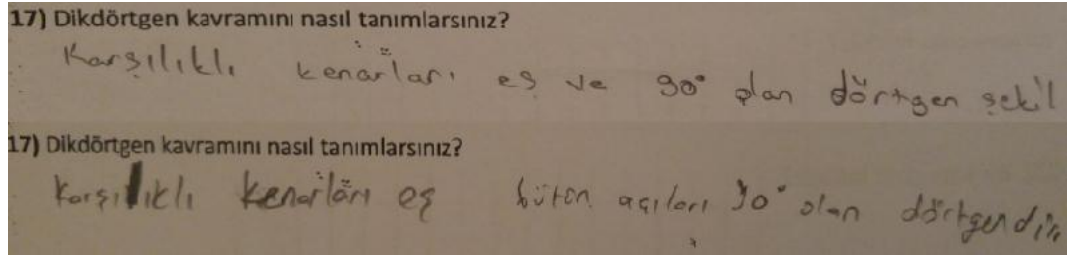 17) Dikdörtgen kavramını nasıl tanımlarsınız?
Karşılıklı kenarları eş ve 90° olan dörtgen şekil
17) Dikdörtgen kavramını nasıl tanımlarsınız?
Karşılıklı kenarları eş bütün açıları 90° olan dörtgendir